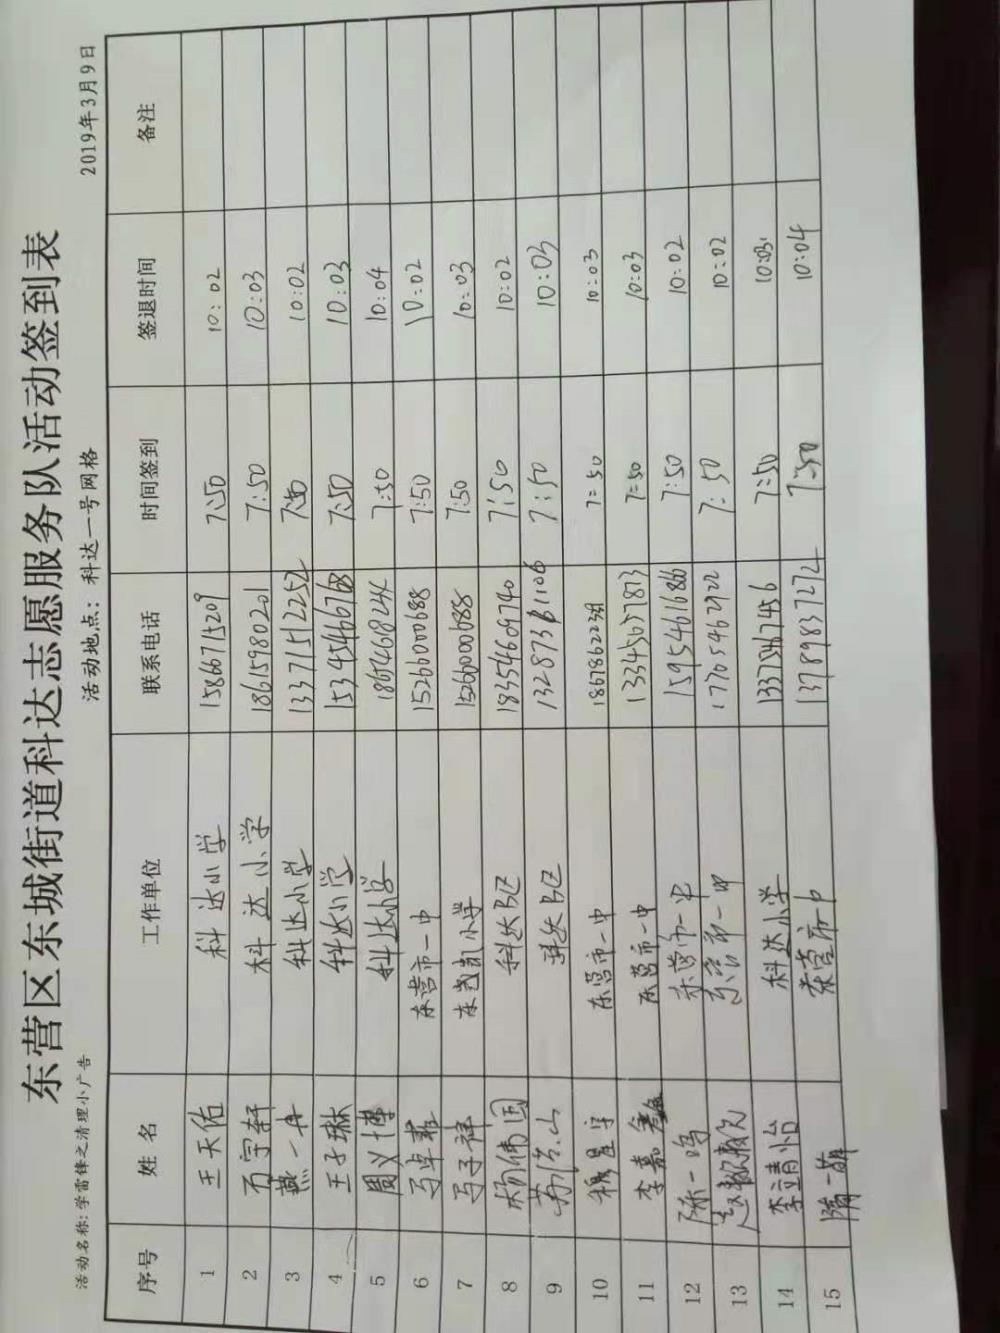 东营区东城街道科达志愿服务队活动签到表
活动名称:学雷锋之清理小广告 活动地点：科达一号网格 2019年3月9日
序号 姓名 工作单位 联系电话 时间签到 签退时间 备注
1 王天佑 科达小学 15866715209 7:50 10:02
2 石宇轩 科达小学 18615980201 7:50 10:03
3 燕一冉 科达小学 13371512252 10:02
4 王子琳 科达小学 15345466768 7:50 10:03
5 周义博 科达小学 7:50 10:04
6 马卓菲 东营市一中 15266000688 7:50 10:02
7 马子祥 小学 15266000688 7:50 10:03
8 杨伟国 科达B区 18354609740 7:50 10:02
9 科达B区 13287361106 7:50 10:03
10 穆星宇 东营市一中 7:50 10:03
11 李嘉 东营市一中 13345657873 7:50 10:03
12 陈一鸣 东营市一中 15954616866 7:50 10:02
13 东营市一中 17705462922 7:50 10:02
14 李靖怡 科达小学 7:50 10:03
15 隋一萌 东营市一中 13789837272 7:50 10:04